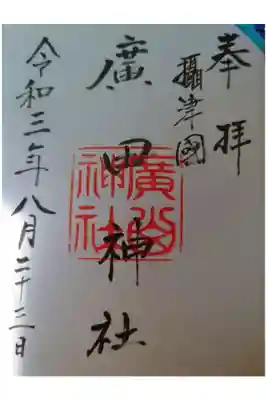 奉拝
攝津國
廣田神社
廣田神社
令和三年八月二十三日